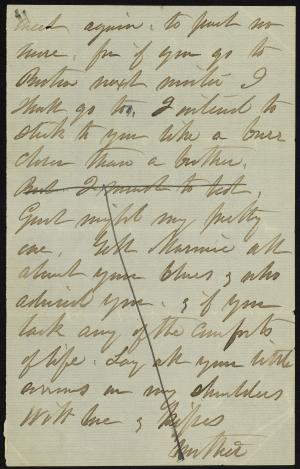 meet again, to part no
more, for if you go to
Boston next winter I
shall go too, I intend to
stick to you like a burr
closer than a brother.
But I must to bed,
Good night my pretty
one, Tell Mamie all
about your blues & who
admired you, & if you
lack any of the comforts
of life. Lay all your little
sorrows on my shoulders
With love & kisses
Mother